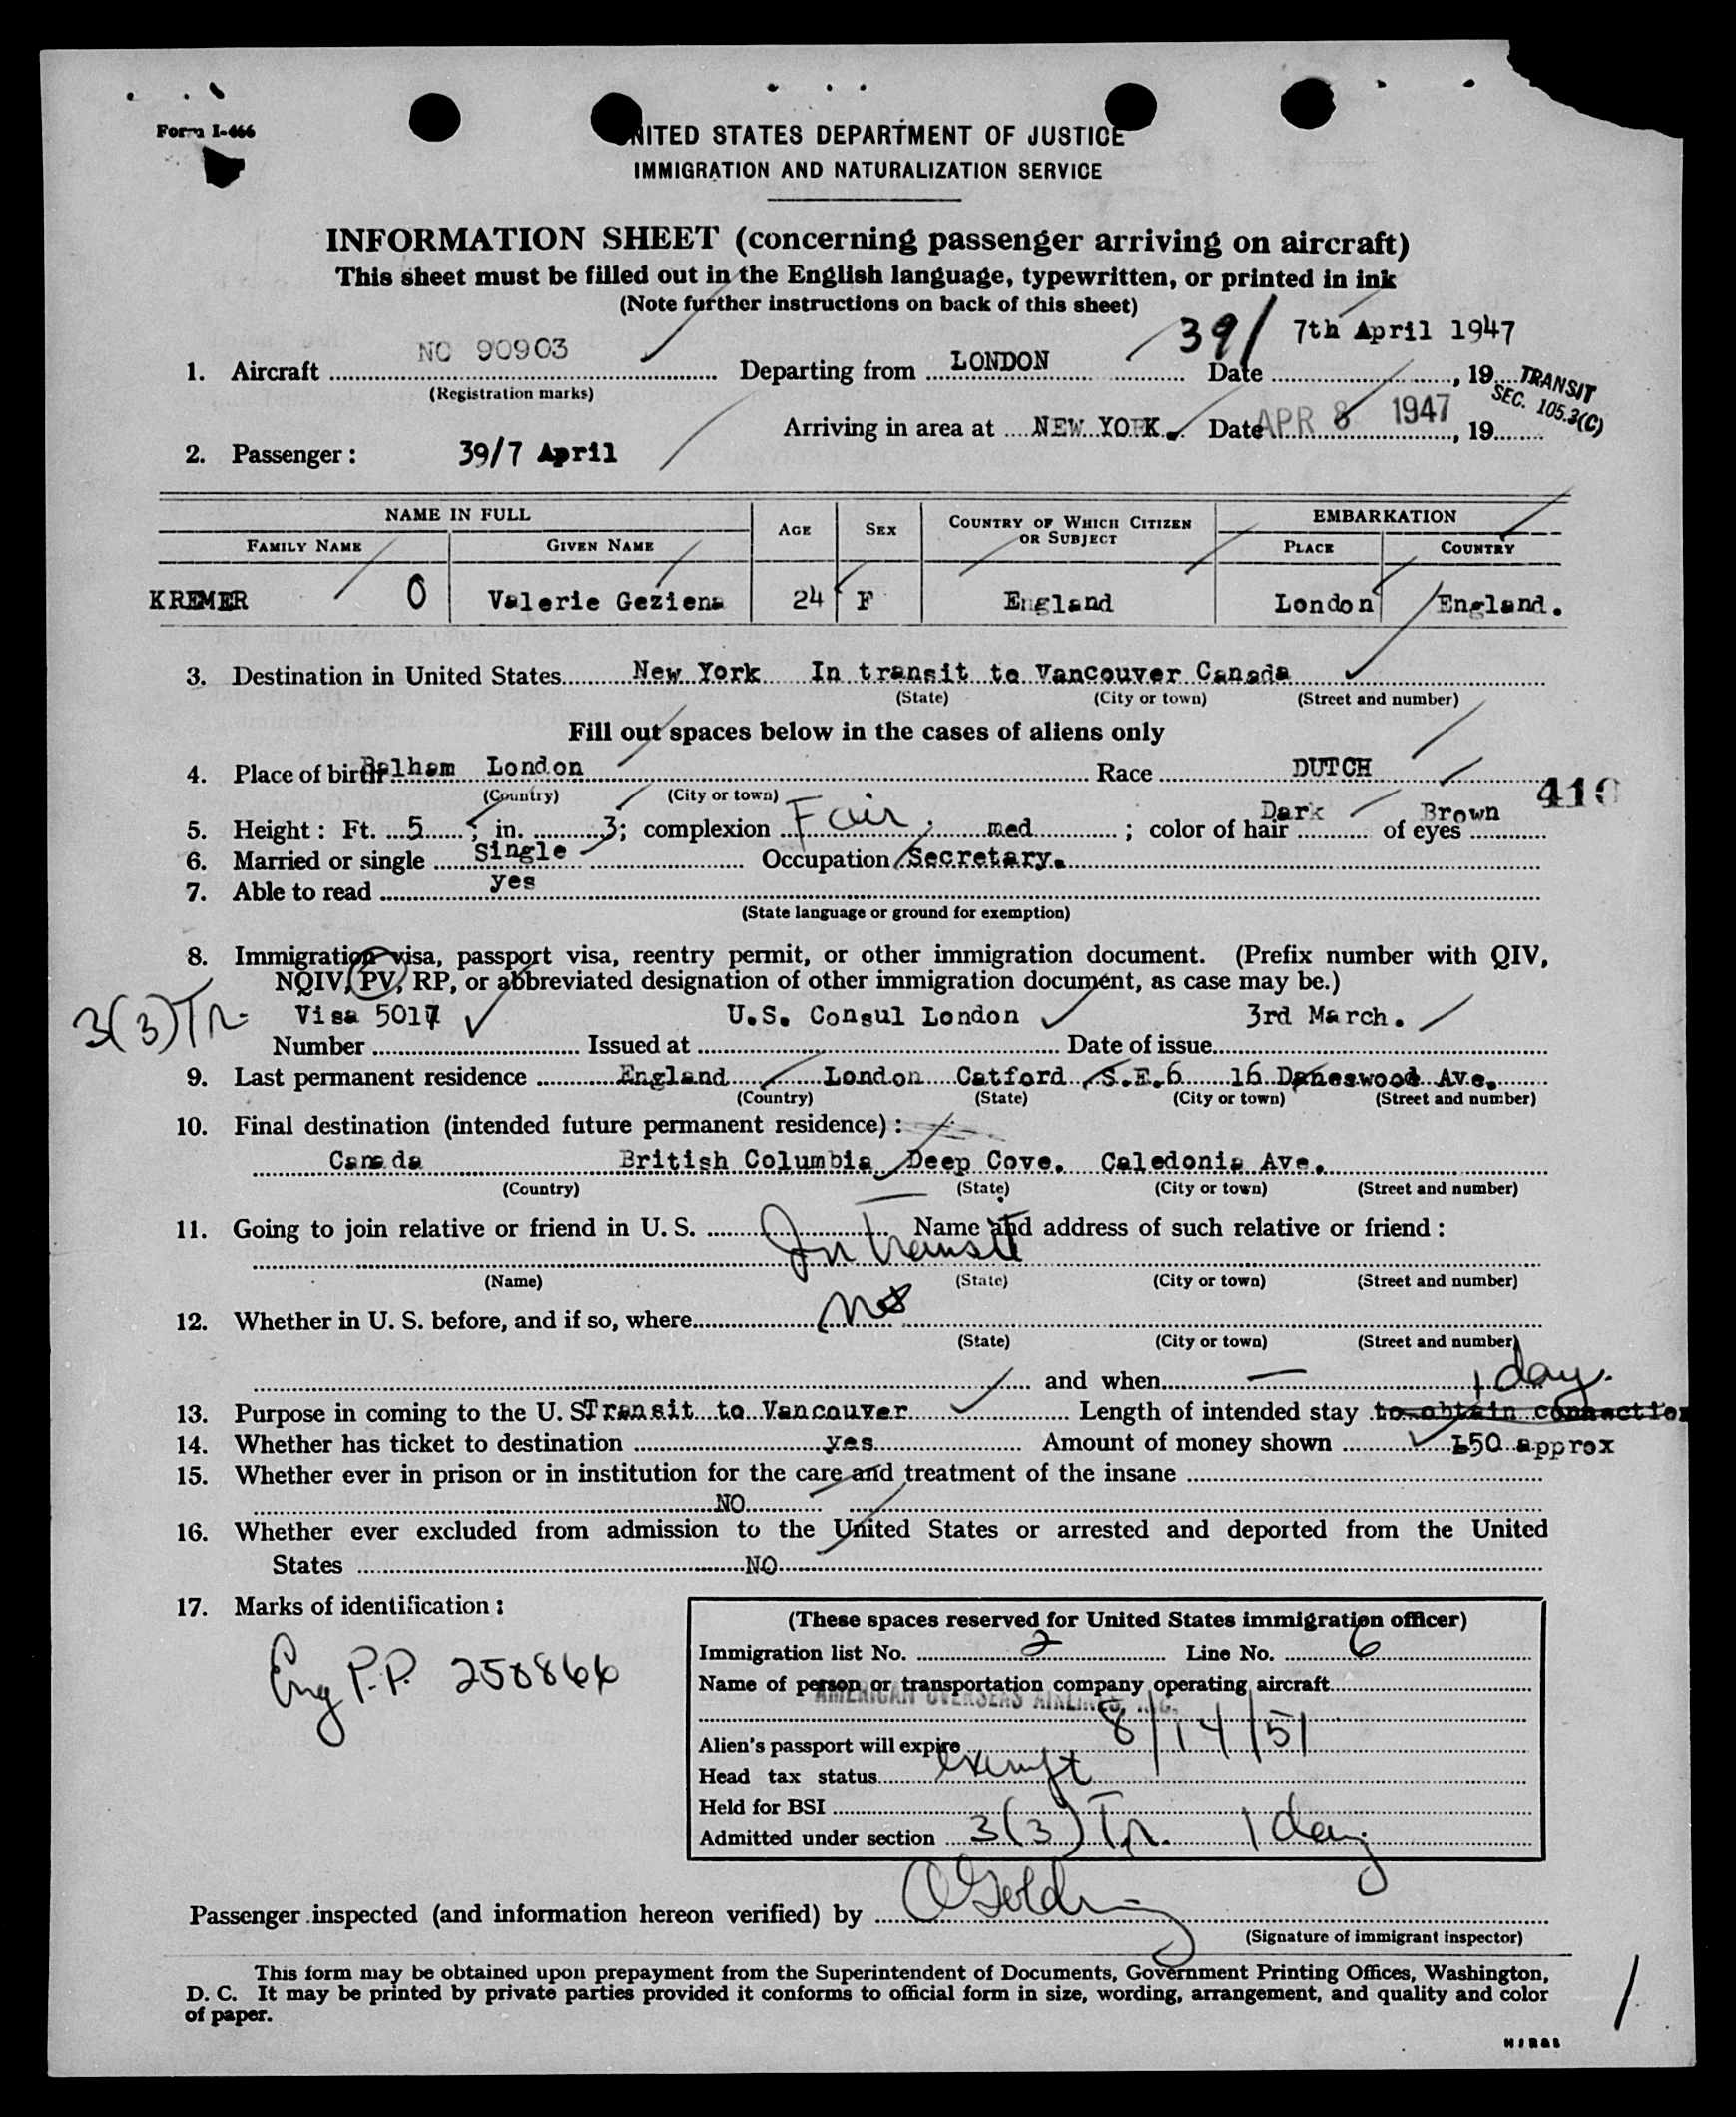 Form I-466
UNITED STATES DEPARTMENT OF JUSTICE
IMMIGRATION AND NATURALIZATION SERVICE
INFORMATION SHEET (concerning passenger arriving on aircraft)
This sheet must be filled out in the English language, typewritten, or printed in ink
(Note further instructions on back of this sheet)
39/ 7th April 1947
1. Aircraft NC 90903 Departing from LONDON Date , 19
(Registration marks)
TRANSIT
SEC. 105.3(C)
Arriving in area at NEW YORK. Date APR 8 1947 , 19
2. Passenger: 39/7 April
NAME IN FULL AGE SEX COUNTRY OF WHICH CITIZEN OR SUBJECT EMBARKATION
FAMILY NAME GIVEN NAME PLACE COUNTRY
KREMER O Valerie Geziena 24 F England London England.
3. Destination in United States New York In transit to Vancouver Canada
(State) (City or town) (Street and number)
Fill out spaces below in the cases of aliens only
4. Place of birth Balham London Race DUTCH
(Country) (City or town)
410
5. Height: Ft. 5; in. 3; complexion Fair. med; color of hair Dark of eyes Brown
6. Married or single Single Occupation Secretary.
7. Able to read yes
(State language or ground for exemption)
8. Immigration visa, passport visa, reentry permit, or other immigration document. (Prefix number with QIV,
NQIV, PV, RP, or abbreviated designation of other immigration document, as case may be.)
3(3)Tr. Visa 5017 U.S. Consul London 3rd March.
Number Issued at Date of issue
9. Last permanent residence England London Catford S.E.6 16 Daneswood Ave.
(Country) (State) (City or town) (Street and number)
10. Final destination (intended future permanent residence):
Canada British Columbia Deep Cove. Caledonia Ave.
(Country) (State) (City or town) (Street and number)
11. Going to join relative or friend in U. S. Name and address of such relative or friend:
In Transit
(Name) (State) (City or town) (Street and number)
12. Whether in U. S. before, and if so, where No
(State) (City or town) (Street and number)
and when — 1 day.
13. Purpose in coming to the U. S. Transit to Vancouver Length of intended stay to obtain connection
14. Whether has ticket to destination yes Amount of money shown £50 approx
15. Whether ever in prison or in institution for the care and treatment of the insane
NO
16. Whether ever excluded from admission to the United States or arrested and deported from the United
States NO
17. Marks of identification:
Eng P.P. 250866
(These spaces reserved for United States immigration officer)
Immigration list No. 2 Line No. 6
Name of person or transportation company operating aircraft
AMERICAN OVERSEAS AIRLINES, INC.
Alien's passport will expire 8/14/51
Head tax status exempt
Held for BSI
Admitted under section 3(3) Tr. 1 day
Passenger inspected (and information hereon verified) by
(Signature of immigrant inspector)
This form may be obtained upon prepayment from the Superintendent of Documents, Government Printing Offices, Washington,
D. C. It may be printed by private parties provided it conforms to official form in size, wording, arrangement, and quality and color
of paper.